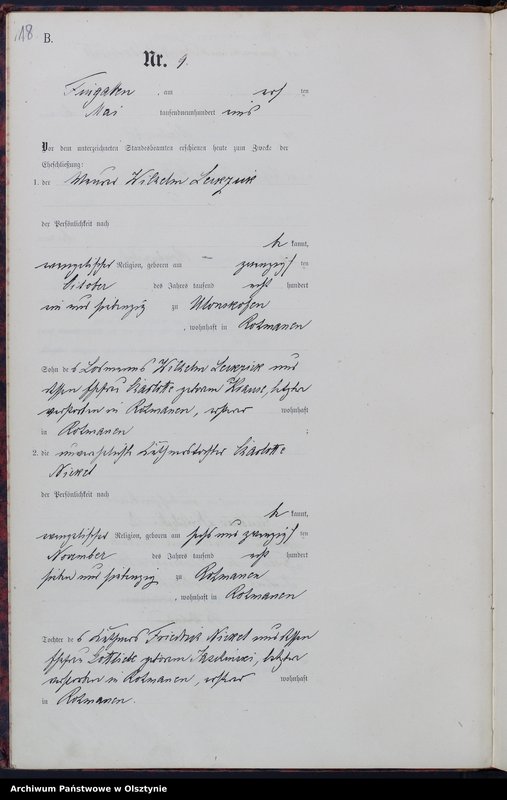 118
B.
Nr. 9.
am ten
Mai tausendneunhundert
Vor dem unterzeichneten Standesbeamten erschienen heute zum Zwecke der
Eheschließung:
1. der Maurer Wilhelm
der Persönlichkeit nach
be kannt,
evangelischer Religion, geboren am zwanzigs ten
October des Jahres tausend acht hundert
ein und siebenzig zu
, wohnhaft in Rohmanen
Sohn des Losmanns Wilhelm und
dessen Ehefrau Charlotte geborene letztere
verstorben in Rohmanen, ersterer wohnhaft
in Rohmanen ;
2. die unverehelichte Charlotte
Nickel
der Persönlichkeit nach
be kannt,
evangelischer Religion, geboren am sechs und zwanzigs ten
November des Jahres tausend acht hundert
sieben und siebenzig zu Rohmanen
, wohnhaft in Rohmanen
Tochter des Friedrich Nickel und dessen
Ehefrau Gottliebe geborene letztere
verstorben in Rohmanen, ersterer wohnhaft
in Rohmanen.
Archiwum Państwowe w Olsztynie